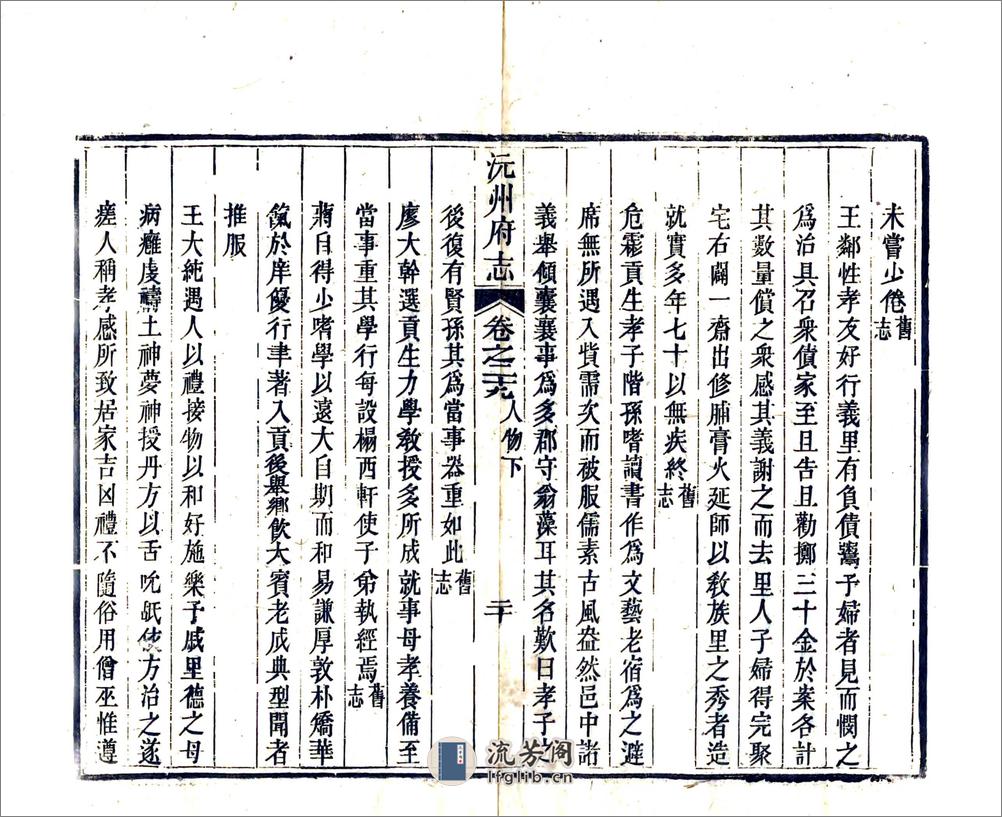 未嘗少倦舊志
王鄰性孝友好行義里有負債鬻子婦者見而憫之
為治具召衆債家至且告且勸擲三十金於案各計
其數量償之衆感其義謝之而去里人子婦得完聚
宅右闢一齋出修脯膏火延師以教族里之秀者造
就實多年七十以無疾終舊志
危貢生孝子階孫嗜讀書作為文藝老宿為之避
席無所遇入貲需次而被服儒素古風盎然邑中諸
義舉傾囊襄事為多郡守翁藻耳其名歎曰孝子
沅州府志 卷之二十九 人物下 二十
後復有賢孫其為當事器重如此舊志
廖大幹選貢生力學教授多所成就事母孝養備至
當事重其學行每設榻西軒使子弟執經焉舊志
蔣自得少嗜學以遠大自期而和易謙厚敦朴矯華
餼於庠優行聿著入貢後舉鄉飲大賓老成典型聞者
推服
王大純遇人以禮接物以和好施樂予戚里德之母
病癰虔禱土神夢神授丹方以舌吮舐使方治之遂
瘥人稱孝感所致居家吉凶禮不隨俗用僧巫惟遵
流芳阁
lfglib.cn